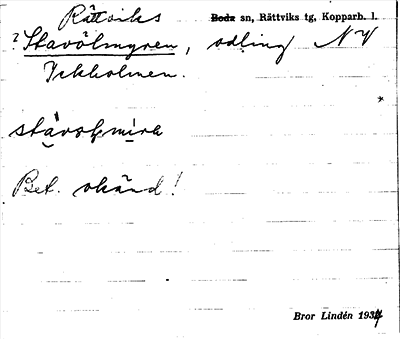 Rättviks ~~Boda~~ sn, Rättviks tg, Kopparb. l.
? Stavölmyren, odling NV
Ickholmen.
Bet. okänd!
Bror Lindén 1934